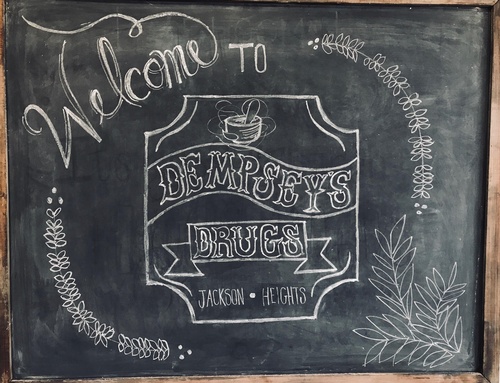 Welcome TO
DEMPSEYS
DRUGS
JACKSON • HEIGHTS